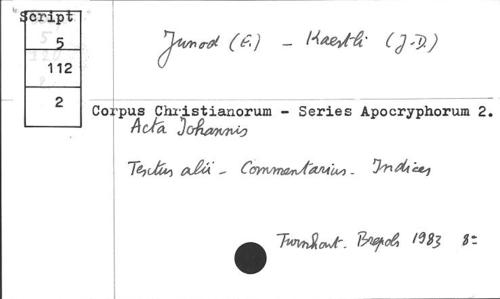 Script
5
112
2
Junod (E.) - Kaestli (J.D.)
Corpus Christianorum - Series Apocryphorum 2.
Acta Johannis
Textus alii - Commentarius. Indices
Turnhout. Brepols 1983 8=